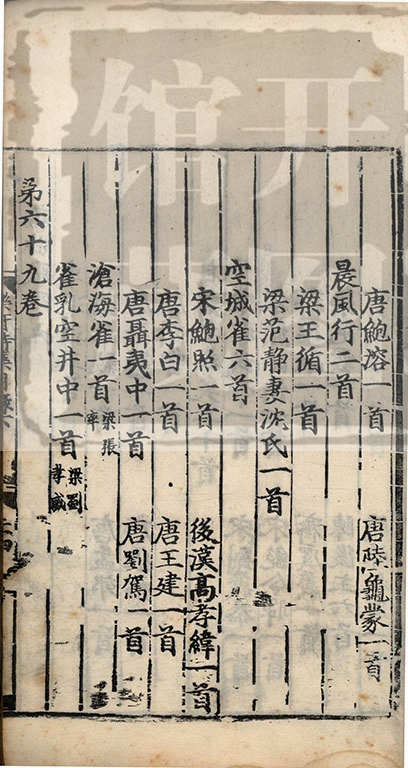 唐鮑溶一首 唐陸龜蒙一首
晨風行二首
梁王循一首
梁范靜妻沈氏一首
空城雀六首
宋鮑照一首 後漢高孝緯一首
唐李白一首 唐王建一首
唐聶夷中一首 唐劉駕一首
滄海雀一首 梁張率
雀乳空井中一首 梁劉孝威
第六十九卷